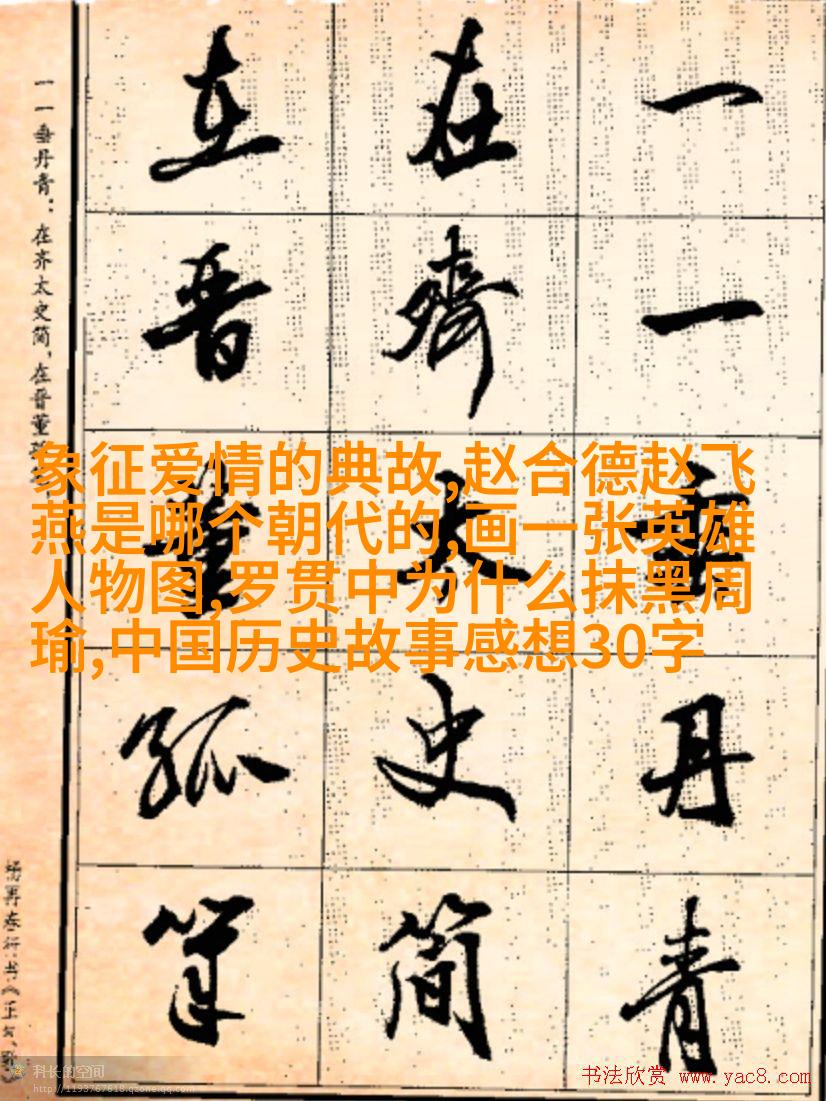 一一垂丹青
在齊太史简
在晋董狐筆
一一垂丹青：在齐太史简，在晋董
杨再春行书《正气歌》
象征爱情的典故,赵合德赵飞
燕是哪个朝代的,画一张英雄
人物图,罗贯中为什么抹黑周
瑜,中国历史故事感想30字
科长的空间
http://1193767618.qzone.qq.com
书法欣赏 www.yac8.com